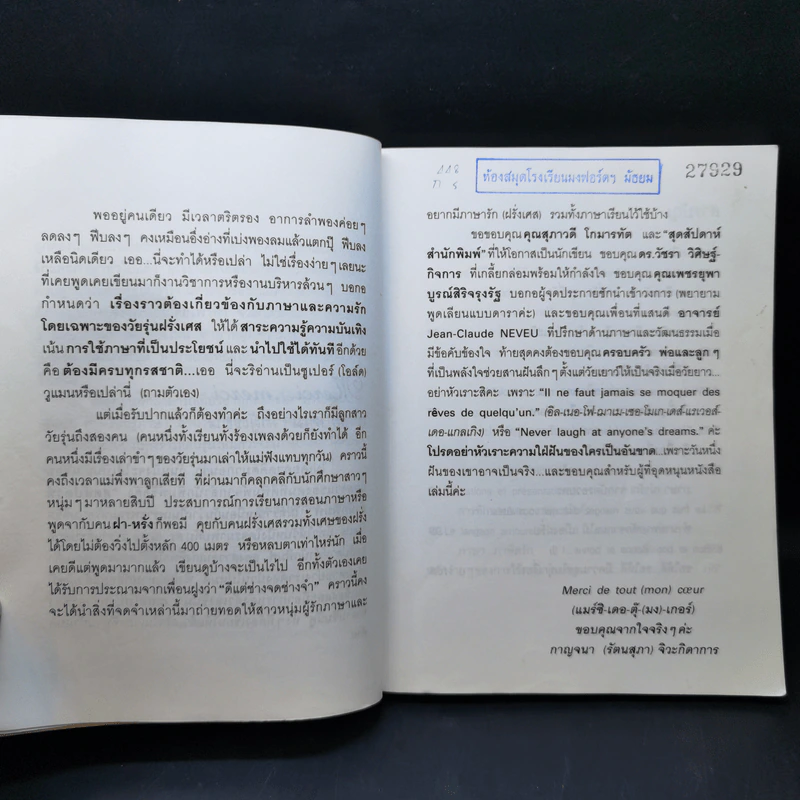 พออยู่คนเดียว มีเวลาตริตรอง อาการลำพองค่อยๆ
ลดลงๆ ฟีบลงๆ คงเหมือนอึ่งอ่างที่เบ่งพองลมแล้วแตกปุ๊ ฟีบลง
เหลือนิดเดียว เออ...นี่จะทำได้หรือเปล่า ไม่ใช่เรื่องง่ายๆ เลยนะ
ที่เคยพูดเคยเขียนมาก็งานวิชาการหรืองานบริหารล้วนๆ บอกอ
กำหนดว่า เรื่องราวต้องเกี่ยวข้องกับภาษาและความรัก
โดยเฉพาะของวัยรุ่นฝรั่งเศส ให้ได้ สาระความรู้ความบันเทิง
เน้น การใช้ภาษาที่เป็นประโยชน์ และ นำไปใช้ได้ทันที อีกด้วย
คือ ต้องมีครบทุกรสชาติ...เออ นี่จะริอ่านเป็นซูเปอร์ (โอลด์)
วูแมนหรือเปล่านี่ (ถามตัวเอง)
แต่เมื่อรับปากแล้วก็ต้องทำค่ะ ถึงอย่างไรเราก็มีลูกสาว
วัยรุ่นถึงสองคน (คนหนึ่งทั้งเรียนทั้งร้องเพลงด้วยก็ยังทำได้ อีก
คนหนึ่งมีเรื่องเล่าขำๆ ของวัยรุ่นมาเล่าให้แม่ฟังแทบทุกวัน) คราวนี้
คงถึงเวลาแม่พึ่งพาลูกเสียที ที่ผ่านมาก็คลุกคลีกับนักศึกษาสาวๆ
หนุ่มๆ มาหลายสิบปี ประสบการณ์การเรียนการสอนภาษาหรือ
พูดจากับคน ฝา-หรั่ง ก็พอมี คุยกับคนฝรั่งเศสรวมทั้งเศษของฝรั่ง
ได้โดยไม่ต้องวิ่งไปตั้งหลัก 400 เมตร หรือหลบตาเท่าไหร่นัก เมื่อ
เคยดีแต่พูดมามากแล้ว เขียนดูบ้างจะเป็นไรไป อีกทั้งตัวเองเคย
ได้รับการประณามจากเพื่อนฝูงว่า "ดีแต่ช่างจดช่างจำ" คราวนี้คง
จะได้นำสิ่งที่จดจำเหล่านี้มาถ่ายทอดให้สาวหนุ่มผู้รักภาษาและ
ห้องสมุดโรงเรียนมงฟอร์ตฯ มัธยม
27929
อยากมีภาษารัก (ฝรั่งเศส) รวมทั้งภาษาเรียนไว้ใช้บ้าง
ขอขอบคุณ คุณสุภาวดี โกมารทัต และ "สุดสัปดาห์
สำนักพิมพ์" ที่ให้โอกาสเป็นนักเขียน ขอบคุณ ดร.วัชรา วิศิษฐ์-
กิจการ ที่เกลี้ยกล่อมพร้อมให้กำลังใจ ขอบคุณ คุณเพชรยุพา
บูรณ์สิริจรุงรัฐ บอกอผู้จุดประกายชักนำเข้าวงการ (พยายาม
พูดเลียนแบบดาราค่ะ) และขอบคุณเพื่อนที่แสนดี อาจารย์
Jean-Claude NEVEU ที่ปรึกษาด้านภาษาและวัฒนธรรมเมื่อ
มีข้อคับข้องใจ ท้ายสุดคงต้องขอบคุณ ครอบครัว พ่อและลูกๆ
ที่เป็นพลังใจช่วยสานฝันลึกๆ ตั้งแต่วัยเยาว์ให้เป็นจริงเมื่อวัยยาว...
อย่าหัวเราะสิคะ เพราะ "Il ne faut jamais se moquer des
rêves de quelqu'un." (อิล-เนอ-โฟ-ฌาเม-เซอ-โมเก-เดส์-แรเวอส์-
เดอ-แกลเกิง) หรือ "Never laugh at anyone's dreams." ค่ะ
โปรดอย่าหัวเราะความใฝ่ฝันของใครเป็นอันขาด...เพราะวันหนึ่ง
ฝันของเขาอาจเป็นจริง...และขอบคุณสำหรับผู้ที่อุดหนุนหนังสือ
เล่มนี้ค่ะ
Merci de tout (mon) cœur
(แมร์ซิ-เดอ-ตุ๊-(มง)-เกอร์)
ขอบคุณจากใจจริงๆ ค่ะ
กาญจนา (รัตนสุภา) จิวะกิดาการ